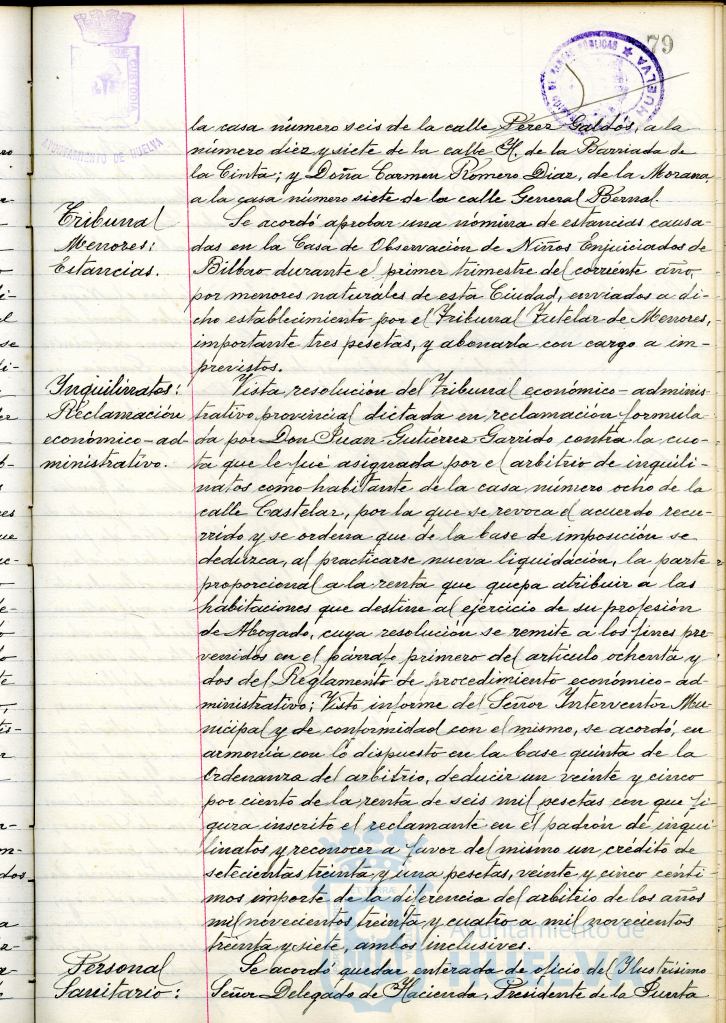 79
AYUNTAMIENTO DE HUELVA
HUELVA
la casa número seis de la calle Pérez Galdós, a la
número diez y siete de la calle H. de la Barriada de
la Cinta; y Doña Carmen Romero Diaz, de la Morana,
a la casa número siete de la calle General Bernal.
Tribunal
Menores:
Estancias.
Se acordó aprobar una nómina de estancias causa-
das en la Casa de Observación de Niños Enjuiciados de
Bilbao durante el primer trimestre del corriente año,
por menores naturales de esta Ciudad, enviados a di-
cho establecimiento por el Tribunal Tutelar de Menores,
importante tres pesetas, y abonarla con cargo a im-
previstos.
Inquilinatos:
Reclamación
económico-ad-
ministrativo.
Vista resolución del Tribunal económico-adminis-
trativo provincial dictada en reclamación formula-
da por Don Juan Gutiérrez Garrido contra la cuo-
ta que le fué asignada por el arbitrio de inquili-
natos como habitante de la casa número ocho de la
calle Castelar, por la que se revoca el acuerdo recu-
rrido y se ordena que de la base de imposición se
deduzca, al practicarse nueva liquidación, la parte
proporcional a la renta que quepa atribuir a las
habitaciones que destine al ejercicio de su profesión
de Abogado, cuya resolución se remite a los fines pre-
venidos en el párrafo primero del artículo ochenta y
dos del Reglamento de procedimiento económico-ad-
ministrativo; Visto informe del Señor Interventor Mu-
nicipal y de conformidad con el mismo, se acordó, en
armonía con lo dispuesto en la base quinta de la
Ordenanza del arbitrio, deducir un veinte y cinco
por ciento de la renta de seis mil pesetas con que fi-
gura inscrito el reclamante en el padrón de inqui-
linatos y reconocer a favor del mismo un crédito de
setecientas treinta y una pesetas, veinte y cinco cénti-
mos importe de la diferencia del arbitrio de los años
mil novecientos treinta y cuatro a mil novecientos
treinta y siete, ambos inclusives.
Personal
Sanitario:
Se acordó quedar enterada de oficio del Ilustrísimo
Señor Delegado de Hacienda, Presidente de la Puerta
Ayuntamiento de
HUELVA